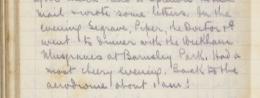 mail & wrote some letters. In the
evening Segrave, Piper, the Doctor & I
went to dinner with the Wickham
Musgraves at Barnsley Park. Had a
most cheery evening. Back to the
aerodrome about 1 am!